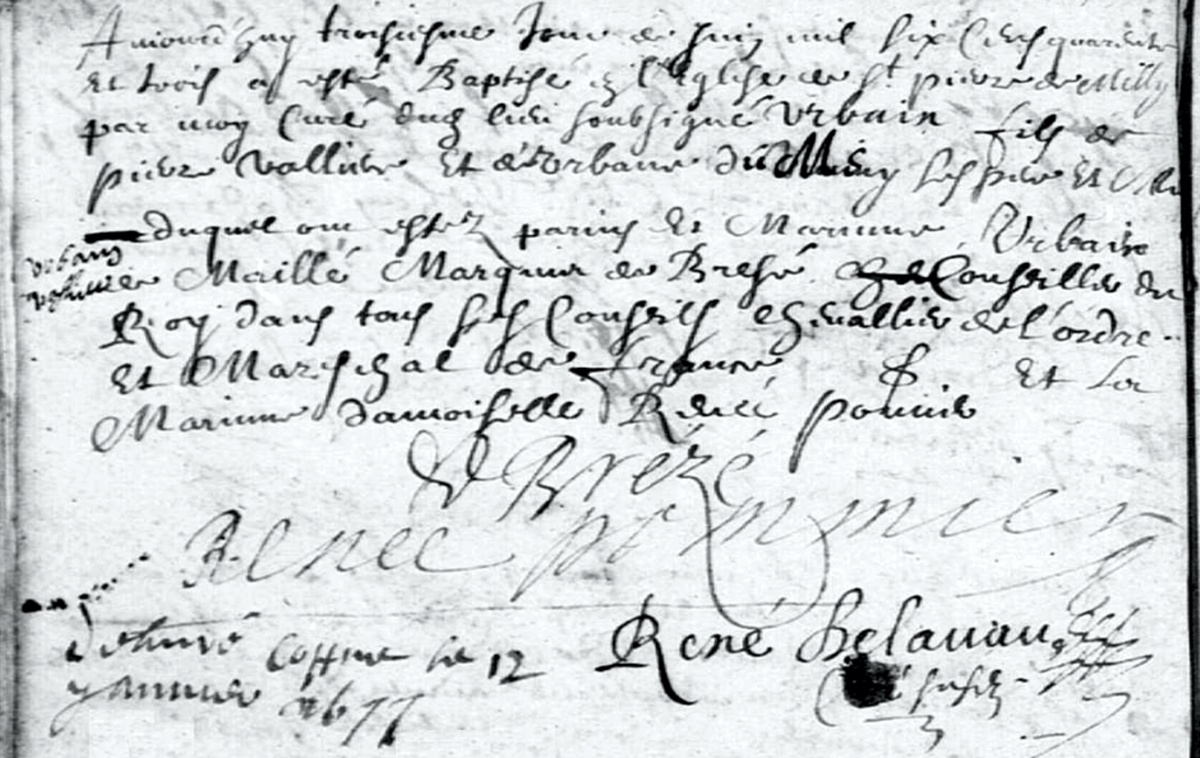 Aujourd'huy troisiesme Jour de Juin mil six Cens quarente
Et trois a esté Baptisé en l'Eglise de St pierre de Milly
par moy Curé dud lieu soubsigné Urbain fils de
pierre vallier Et de Urbane du ses pere Et Me
duquel ont estez parins Et Marinne Urbain
urbain
de Maillé Marquis de Bresé Conseiller du
Roy dans tous ses Conseils chevallier de l'ordre
Et Mareschal de france & Et La
Marinne damoiselle Renée pommier
Brézé
Renee pommier
delivré Coppie le 12
René Belauau
yanvier 1677
Curé susd